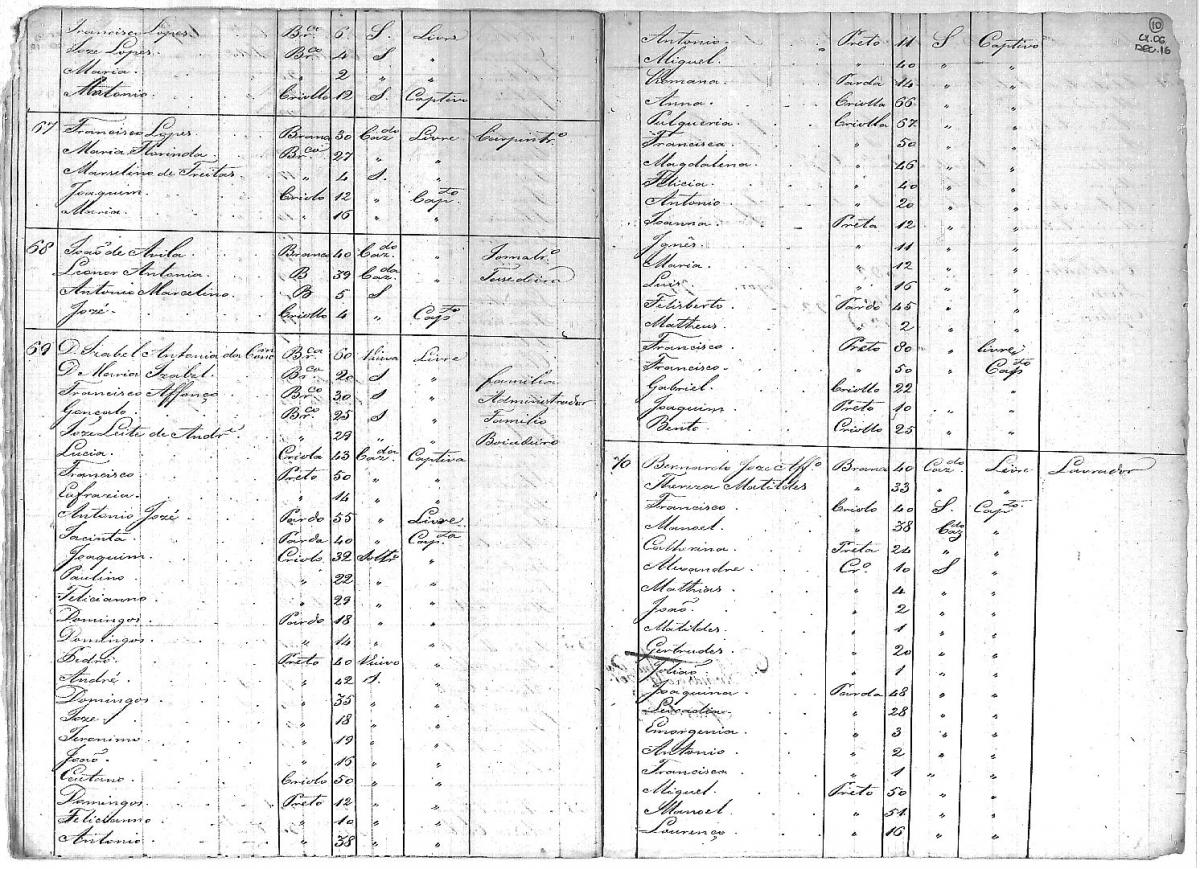 Francisco Lopes Br.co 6 S. Livre
Joze Lopes Br.co 4 S "
Maria " 2 " "
Antonio Criollo 12 S. Captivo
67 Francisco Lopes Branco 30 Caz.do Livre Carpintr.o
Maria Florinda Br.ca 27 " "
Marselino de Freitas " 4 S. "
Joaquim Criolo 12 " Cap.to
Maria " 16 " "
68 João de Avila Branco 40 Caz.do " Jornalr.o
Leonor Antonia B 39 Caz.da " Tesedeira
Antonio Marcelino B 5 S "
Jozé Criollo 4 " Cap.to
69 D. Izabel Antonia da Br.ca 60 Viuva Livre
D. Maria Izabel Br.ca 20 S " familia
Francisco Affonço Br.co 30 S " Administrador
Gonçalo Br.co 25 S " Familio
Joze Leite de Andr.e " 29 " " Boiadeiro
Lucia Criola 43 Caz.da Captiva
Francisco Preto 50 " "
Eufrazia " 14 " "
Antonio Jozé Pardo 55 " Livre
Jacinta Parda 40 " Cap.ta
Joaquim Criolo 32 Soltr.o "
Paulino " 22 " "
Felicianno " 29 " "
Domingos Pardo 18 " "
Domingos " 14 " "
Pedro Preto 40 Viuvo "
André " 42 S. "
Domingos " 35 " "
Joze " 18 " "
Jeronimo " 19 " "
João " 16 " "
Caetano Criolo 50 " "
Domingos Preto 12 " "
Felicianno " 10 " "
Antonio " 38 " "
10
C1.06
DEC.16
Antonio Preto 11 S Captivo
Miguel " 40 " "
Romana Parda 14 " "
Anna Criolla 66 " "
Pulqueria Criolla 67 " "
Francisca " 50 " "
Magdalena " 46 " "
Felicia " 40 " "
Antonio " 20 " "
Joanna Preta 12 " "
Ignes " 11 " "
Maria " 12 " "
Luis " 16 " "
Felisberto Pardo 45 " "
Matheus " 2 " "
Francisco Preto 80 " livre
Francisco " 50 " Cap.to
Gabriel Criollo 22 " "
Joaquim Preto 10 " "
Bento Criollo 25 " "
70 Bernardo Joze Aff.o Branco 40 Caz.do Livre Lavrador
Thereza Matildes " 33 " "
Francisco Criolo 40 S. Cap.to
Manoel " 38 Caz.do "
Catherina Preta 24 " "
Alexandre Cr.o 10 S "
Mathias " 4 " "
João " 2 " "
Matildes " 1 " "
Gertrudes " 20 " "
Julião " 1 " "
Joaquina Parda 48 " "
Leocadia " 28 " "
Emergenia " 3 " "
Antonio " 2 " "
Francisca " 1 " "
Miguel Preto 50 " "
Manoel " 51 " "
Lourenço " 16 " "